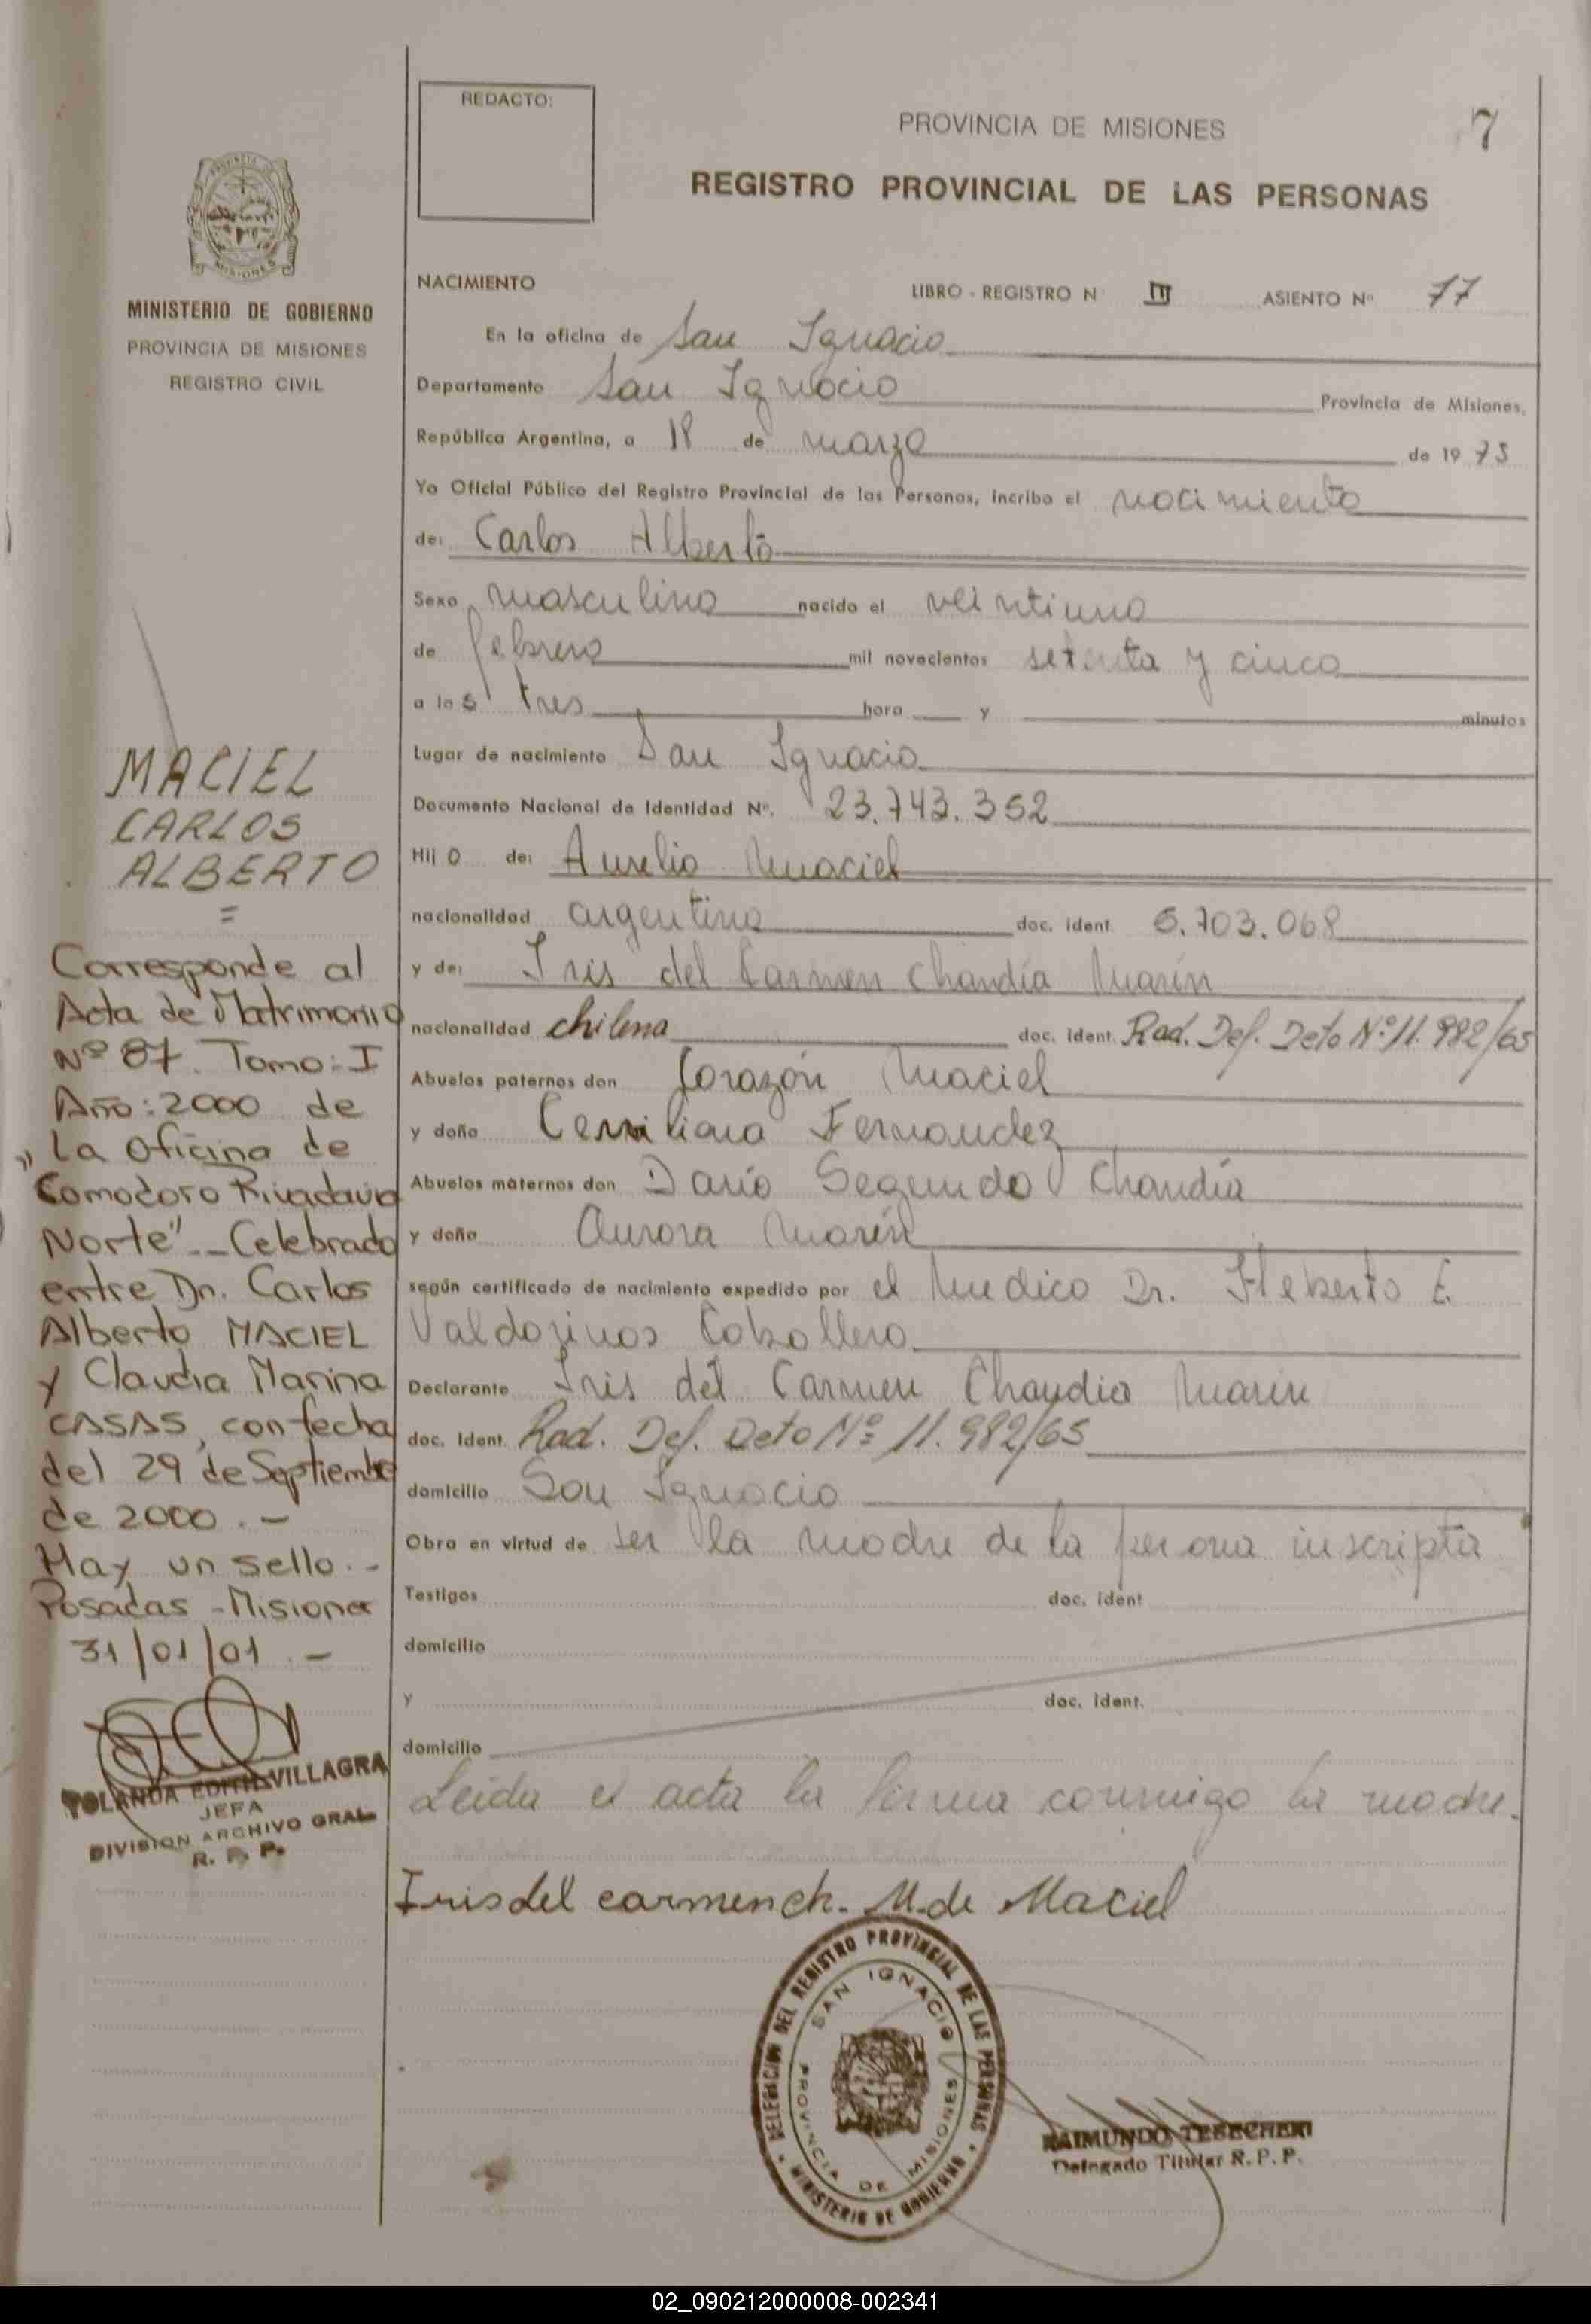 REDACTO:
PROVINCIA DE MISIONES
7
REGISTRO PROVINCIAL DE LAS PERSONAS
MINISTERIO DE GOBIERNO
PROVINCIA DE MISIONES
REGISTRO CIVIL
NACIMIENTO LIBRO - REGISTRO N III ASIENTO Nº 77
En la oficina de San Ignacio
Departamento San Ignacio Provincia de Misiones,
República Argentina, a 18 de marzo de 19 75
Yo Oficial Público del Registro Provincial de las Personas, incribo el nacimiento
de: Carlos Alberto
Sexo masculino nacido el veintiuno
de febrero mil novecientos setenta y cinco
a las tres hora y minutos
Lugar de nacimiento San Ignacio
Documento Nacional de Identidad Nº. 23.743.352
Hijo de: Aurelio Maciel
nacionalidad argentina doc. ident. 5.703.068
y de: Iris del Carmen Chandía Marín
nacionalidad chilena doc. ident. Rad. Def. Deto Nº 11.982/65
Abuelos paternos don Corazón Maciel
y doña Fernandez
Abuelos maternos don Darío Segundo Chandía
y doña Aurora Marín
según certificado de nacimiento expedido por el Medico Dr. Heberto E.
Valdosinos Caballero
Declarante Iris del Carmen Chandia Marin
doc. Ident. Rad. Def. Deto Nº 11.982/65
domicilio San Ignacio
Obra en virtud de ser la madre de la persona inscripta
Testigos doc. ident
domicilio
y doc. ident.
domicilio
Leida el acta la firma conmigo la madre.
Iris del carmen ch. M. de Maciel
MACIEL
CARLOS
ALBERTO
=
Corresponde al
Acta de Matrimonio
Nº 87. Tomo: I
Año: 2000 de
"La Oficina de
Comodoro Rivadavia
Norte"-- Celebrado
entre Dn. Carlos
Alberto MACIEL
y Claudia Marina
CASAS, con fecha
del 29 de Septiembre
de 2000.-
Hay un sello.-
Posadas - Misiones
31/01/01.-
YOLANDA EDITH VILLAGRA
JEFA
DIVISION ARCHIVO GRAL.
R. P. P.
DELEGACION DEL REGISTRO PROVINCIAL DE LAS PERSONAS
SAN IGNACIO
PROVINCIA DE MISIONES
MINISTERIO DE GOBIERNO
RAIMUNDO TESECHERI
Delegado Titular R. P. P.
02_090212000008-002341